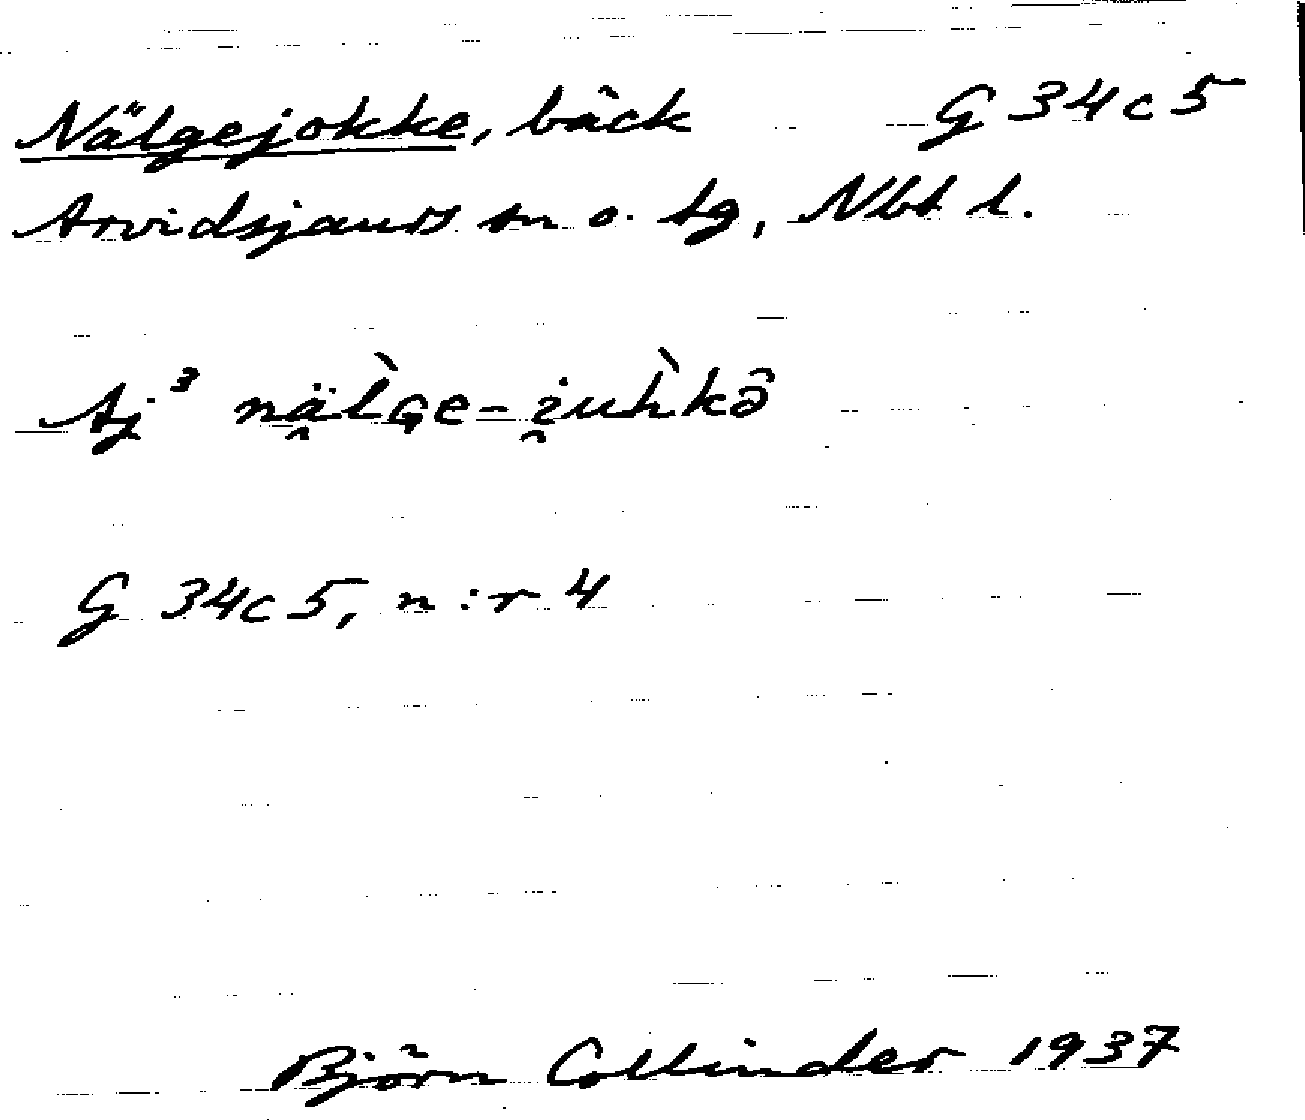 Nälgejokke, bäck G 34 c 5
Arvidsjaurs sn o. tg, Nbt l.
Aj³ nä̯l̀ɢe-i̯uh̀kə̂
G 34c 5, n:r 4
Björn Collinder 1937